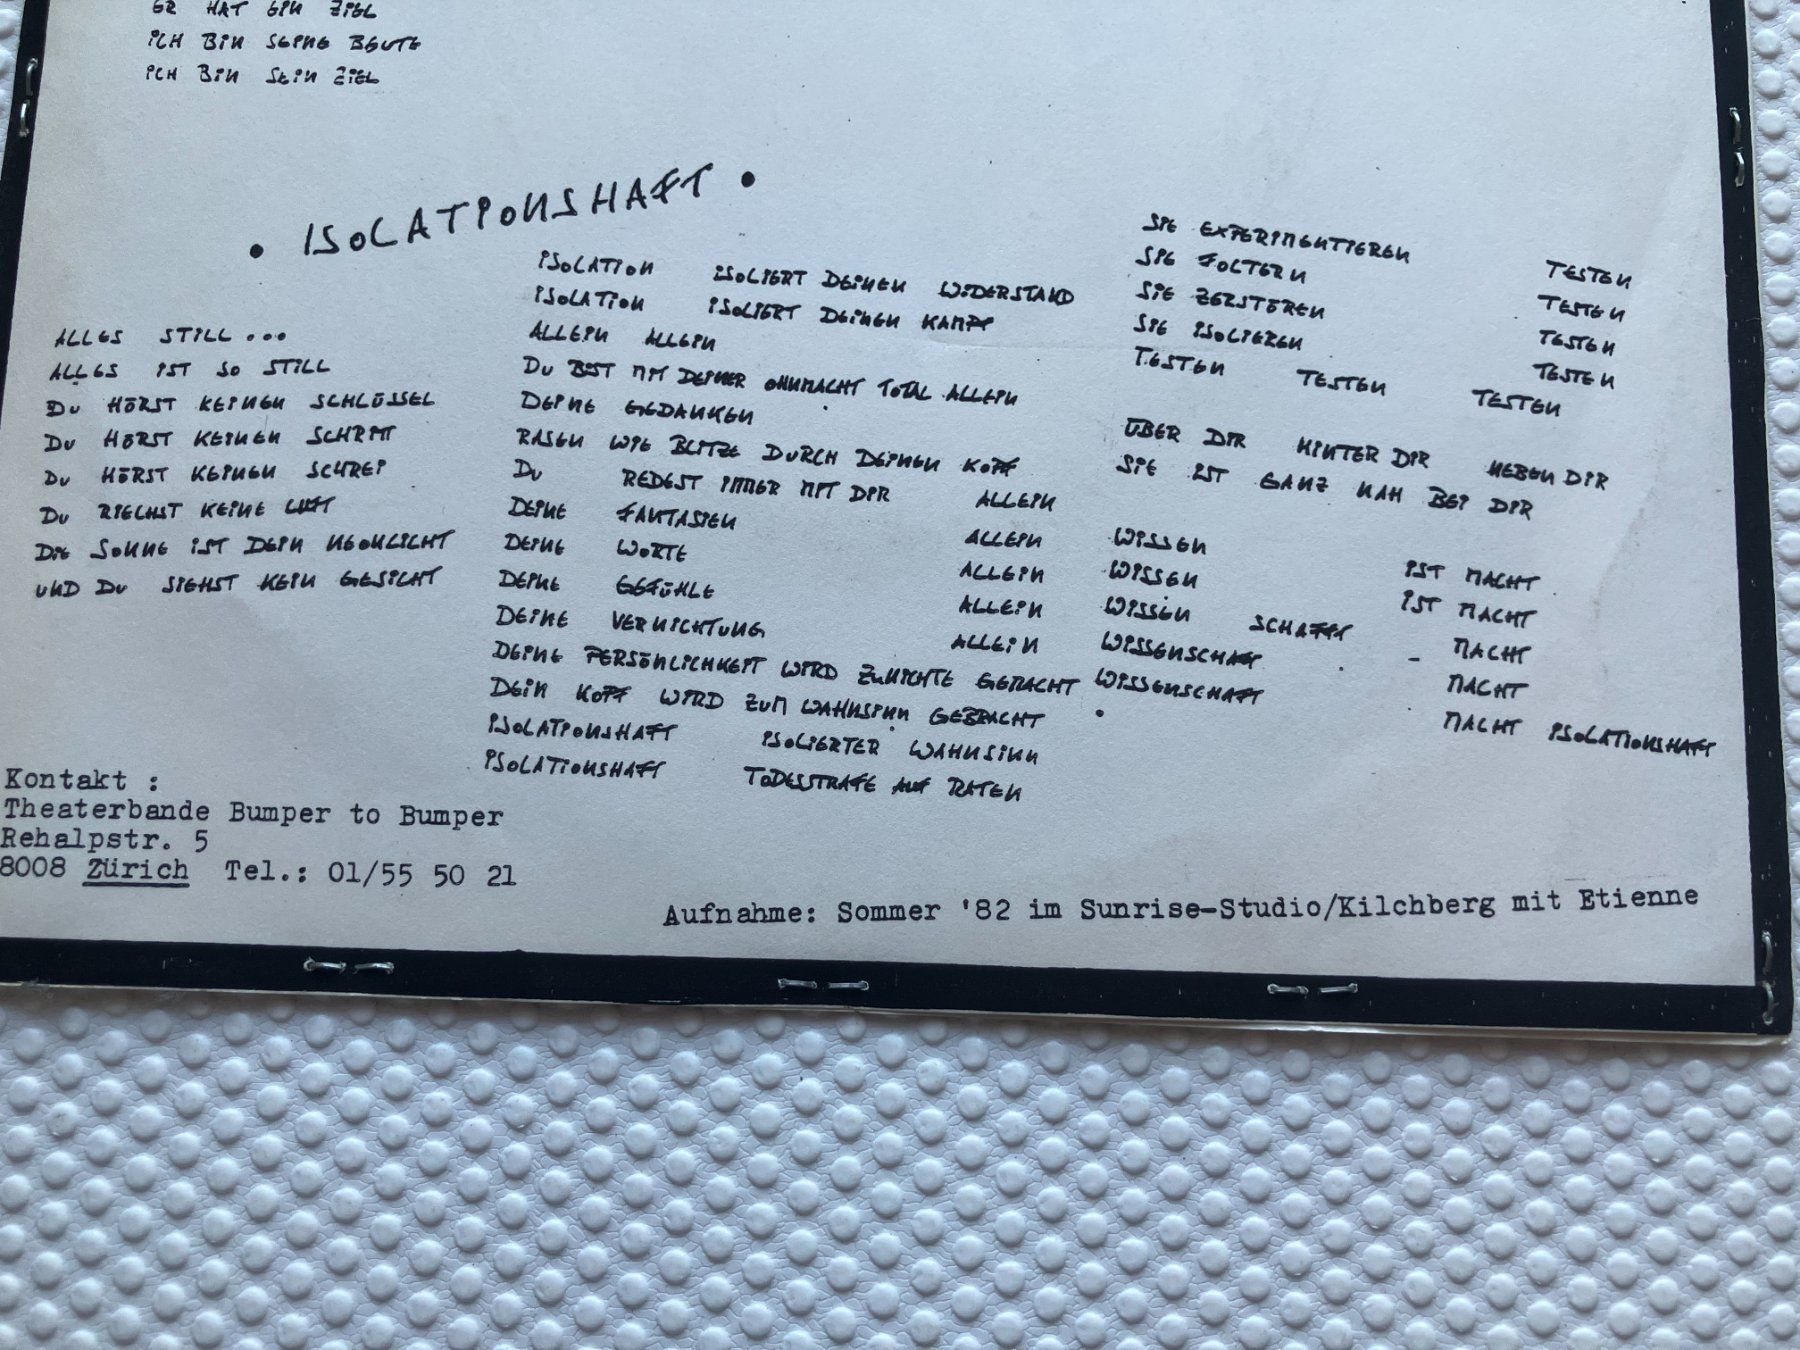 ER HAT EIN ZIEL
ICH BIN SEINE BEUTE
ICH BIN SEIN ZIEL
• ISOLATIONSHAFT •
ALLES STILL...
ALLES IST SO STILL
DU HÖRST KEINEN SCHLÜSSEL
DU HÖRST KEINEN SCHRITT
DU HÖRST KEINEN SCHREI
DU RIECHST KEINE LUFT
DIE SONNE IST DEIN NEONLICHT
UND DU SIEHST KEIN GESICHT
ISOLATION ISOLIERT DEINEN WIDERSTAND
ISOLATION ISOLIERT DEINEN KAMPF
ALLEIN ALLEIN
DU BIST MIT DEINER OHNMACHT TOTAL ALLEIN
DEINE GEDANKEN
RASEN WIE BLITZE DURCH DEINEN KOPF
DU REDEST IMMER MIT DIR ALLEIN
DEINE FANTASIEN ALLEIN
DEINE WORTE ALLEIN
DEINE GEFÜHLE ALLEIN
DEINE VERNICHTUNG ALLEIN
DEINE PERSÖNLICHKEIT WIRD ZUNICHTE GEMACHT
DEIN KOPF WIRD ZUM WAHNSINN GEBRACHT
ISOLATIONSHAFT ISOLIERTER WAHNSINN
ISOLATIONSHAFT TODESSTRAFE AUF RATEN
SIE EXPERIMENTIEREN TESTEN
SIE FOLTERN TESTEN
SIE ZERSTÖREN TESTEN
SIE ISOLIEREN TESTEN
TESTEN TESTEN TESTEN
ÜBER DIR HINTER DIR NEBEN DIR
SIE IST GANZ NAH BEI DIR
WISSEN IST MACHT
WISSEN IST MACHT
WISSEN SCHAFFT MACHT
WISSENSCHAFT MACHT
WISSENSCHAFT MACHT ISOLATIONSHAFT
Kontakt :
Theaterbande Bumper to Bumper
Rehalpstr. 5
8008 Zürich Tel.: 01/55 50 21
Aufnahme: Sommer '82 im Sunrise-Studio/Kilchberg mit Etienne